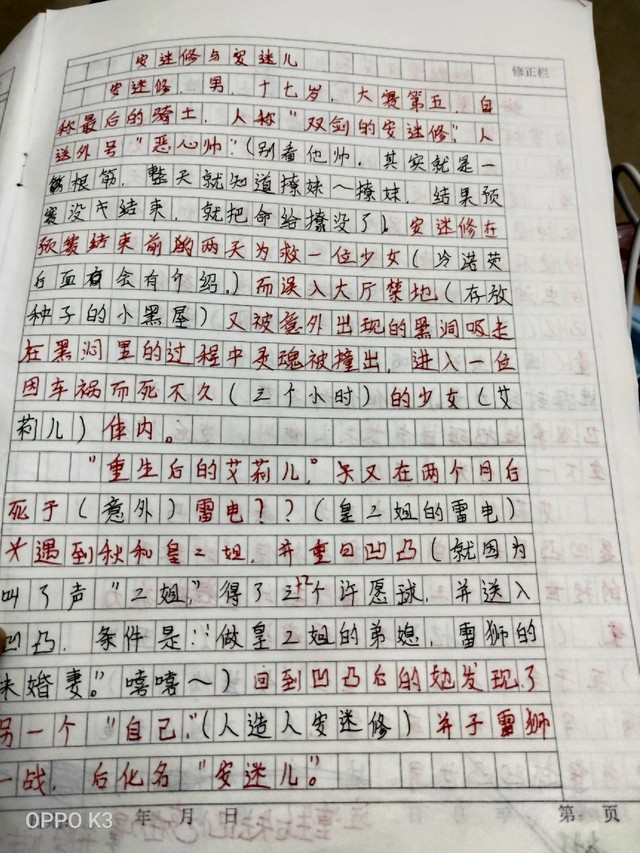 安迷修与安迷儿
修正栏
安迷修，男，十七岁，大赛第五，自
称最后的骑士，人称"双剑的安迷修"，人
送外号"恶心帅"（别看他帅，其实就是一
筋根筋，整天就知道撩妹～撩妹，结果预
赛没结束，就把命给撩没了）。安迷修在
预赛结束前的两天为救一位少女（冷诺茨
后面有会有介绍。）而误入大厅禁地（存放
种子的小黑屋）又被意外出现的黑洞吸走
在黑洞里的过程中灵魂被撞出，进入一位
因车祸而死不久（三个小时）的少女（艾
莉儿）体内。
"重生后的艾莉儿，"又在两个月后
死于（意外）雷电？？（皇二姐的雷电）
遇到秋和皇二姐，并重回凹凸（就因为
叫了声"二姐，"得了个许愿球，并送入
凹凸，条件是：∶做皇二姐的弟媳，雷狮的
未婚妻。"嘻嘻～）回到凹凸后的她发现了
另一个"自己，"（人造人安迷修）并于雷狮
一战，后化名"安迷儿"。
年 月 日
第 页
OPPO K3